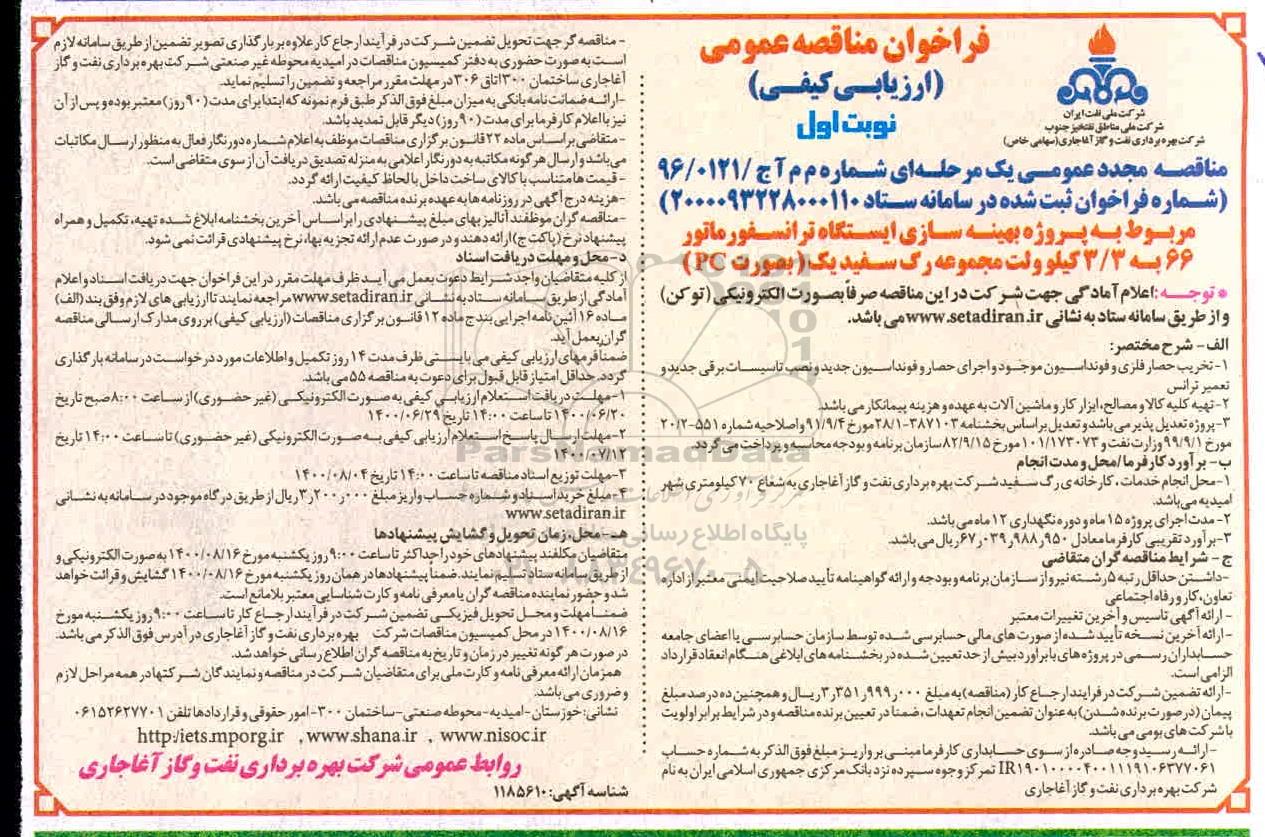 فراخوان مناقصه عمومی
(ارزیابی کیفی)
نوبت اول
شرکت ملی نفت ایران
شرکت ملی مناطق نفتخیز جنوب
شرکت بهره برداری نفت و گاز آغاجاری (سهامی خاص)
مناقصه مجدد عمومی یک مرحله‌ای شماره م م آ ج /۹۶/۰۱۲۱
(شماره فراخوان ثبت شده در سامانه ستاد ۲۰۰۰۰۹۳۲۲۸۰۰۰۱۱۰)
مربوط به پروژه بهینه سازی ایستگاه ترانسفورماتور
۶۶ به ۳/۳ کیلو ولت مجموعه رگ سفید یک (بصورت PC)
* توجه: اعلام آمادگی جهت شرکت در این مناقصه صرفاً بصورت الکترونیکی (توکن)
و از طریق سامانه ستاد به نشانی www.setadiran.ir می باشد.
الف- شرح مختصر:
۱- تخریب حصار فلزی و فونداسیون موجود و اجرای حصار و فونداسیون جدید و نصب تاسیسات برقی جدید و
تعمیر ترانس
۲- تهیه کلیه کالا و مصالح، ابزار کار و ماشین آلات به عهده و هزینه پیمانکار می باشد.
۳- پروژه تعدیل پذیر می باشد و تعدیل براساس بخشنامه ۳۸۷۱۰۳-۲۸/۱ مورخ ۹۱/۹/۴ و اصلاحیه شماره ۵۵۱-۲۰/۲
مورخ ۹۹/۹/۱ وزارت نفت و ۱۰۱/۱۷۳۰۷۳ مورخ ۸۲/۹/۱۵ سازمان برنامه و بودجه محاسبه و پرداخت می گردد.
ب- برآورد کارفرما/محل و مدت انجام
۱- محل انجام خدمات، کارخانه ی رگ سفید شرکت بهره برداری نفت و گاز آغاجاری به شعاع ۷۰ کیلومتری شهر
امیدیه می باشد.
۲- مدت اجرای پروژه ۱۵ ماه و دوره نگهداری ۱۲ ماه می باشد.
۳- برآورد تقریبی کارفرما معادل ۶۷,۰۳۹,۹۸۸,۹۵۰ ریال می باشد.
ج- شرایط مناقصه گران متقاضی
-داشتن حداقل رتبه ۵ رشته نیرو از سازمان برنامه و بودجه و ارائه گواهینامه تأیید صلاحیت ایمنی معتبر از اداره
تعاون، کار و رفاه اجتماعی
- ارائه آگهی تاسیس و آخرین تغییرات معتبر
- ارائه آخرین نسخه تأیید شده از صورت های مالی حسابرسی شده توسط سازمان حسابرسی یا اعضای جامعه
حسابداران رسمی در پروژه های با برآورد بیش از حد تعیین شده در بخشنامه های ابلاغی هنگام انعقاد قرارداد
الزامی است.
- ارائه تضمین شرکت در فرایند ارجاع کار (مناقصه) به مبلغ ۳,۳۵۱,۹۹۹,۰۰۰ ریال و همچنین ده درصد مبلغ
پیمان (در صورت برنده شدن) به عنوان تضمین انجام تعهدات، ضمنا در تعیین برنده مناقصه و در شرایط برابر اولویت
با شرکت های بومی می باشد.
- ارائه رسید وجه صادره از سوی حسابداری کارفرما مبنی بر واریز مبلغ فوق الذکر به شماره حساب
IR۱۹۰۱۰۰۰۰۴۰۰۱۱۱۹۱۰۶۳۷۷۰۶۱ تمرکز وجوه سپرده نزد بانک مرکزی جمهوری اسلامی ایران به نام
شرکت بهره برداری نفت و گاز آغاجاری
- مناقصه گر جهت تحویل تضمین شرکت در فرآیند ارجاع کار علاوه بر بارگذاری تصویر تضمین از طریق سامانه لازم
است به صورت حضوری به دفتر کمیسیون مناقصات در امیدیه محوطه غیر صنعتی شرکت بهره برداری نفت و گاز
آغاجاری ساختمان ۳۰۰ اتاق ۳۰۶ در مهلت مقرر مراجعه و تضمین را تسلیم نماید.
-ارائه ضمانت نامه بانکی به میزان مبلغ فوق الذکر طبق فرم نمونه که ابتدا برای مدت (۹۰ روز) معتبر بوده و پس از آن
نیز با اعلام کارفرما برای مدت (۹۰ روز) دیگر قابل تمدید باشد.
-متقاضی بر اساس ماده ۲۲ قانون برگزاری مناقصات موظف به اعلام شماره دورنگار فعال به منظور ارسال مکاتبات
می باشد و ارسال هر گونه مکاتبه به دورنگار اعلامی به منزله تصدیق دریافت آن از سوی متقاضی است.
- قیمت ها متناسب با کالای ساخت داخل با لحاظ کیفیت ارائه گردد.
-هزینه درج آگهی در روزنامه ها به عهده برنده مناقصه می باشد.
-مناقصه گران موظفند آنالیز بهای مبلغ پیشنهادی را بر اساس آخرین بخشنامه ابلاغ شده تهیه، تکمیل و همراه
پیشنهاد نرخ (پاکت ج) ارائه دهند و در صورت عدم ارائه تجزیه بها، نرخ پیشنهادی قرائت نمی شود.
د-محل و مهلت دریافت اسناد
از کلیه متقاضیان واجد شرایط دعوت بعمل می آید ظرف مهلت مقرر در این فراخوان جهت دریافت اسناد و اعلام
آمادگی از طریق سامانه ستاد به نشانی www.setadiran.ir مراجعه نمایند تا ارزیابی های لازم وفق بند (الف)
ماده ۱۶ آئین نامه اجرایی بند ج ماده ۱۲ قانون برگزاری مناقصات (ارزیابی کیفی) بر روی مدارک ارسالی مناقصه
گران بعمل آید.
ضمنا فرمهای ارزیابی کیفی می بایستی ظرف مدت ۱۴ روز تکمیل و اطلاعات مورد درخواست در سامانه بارگذاری
گردد. حداقل امتیاز قابل قبول برای دعوت به مناقصه ۵۵ می باشد.
۱-مهلت دریافت استعلام ارزیابی کیفی به صورت الکترونیکی (غیر حضوری) از ساعت ۸:۰۰ صبح تاریخ
۱۴۰۰/۰۶/۲۰ تا ساعت ۱۴:۰۰ تاریخ ۱۴۰۰/۰۶/۲۹
۲-مهلت ارسال پاسخ استعلام ارزیابی کیفی به صورت الکترونیکی (غیر حضوری) تا ساعت ۱۴:۰۰ تاریخ
۱۴۰۰/۰۷/۱۲
۳-مهلت توزیع اسناد مناقصه تا ساعت ۱۴:۰۰ تاریخ ۱۴۰۰/۰۸/۰۴
۴-مبلغ خرید اسناد و شماره حساب واریز مبلغ ۳,۲۰۰,۰۰۰ ریال از طریق درگاه موجود در سامانه به نشانی
www.setadiran.ir
هـ-محل، زمان تحویل و گشایش پیشنهادها
متقاضیان مکلفند پیشنهادهای خود را حداکثر تا ساعت ۹:۰۰ روز یکشنبه مورخ ۱۴۰۰/۰۸/۱۶ به صورت الکترونیکی و
از طریق سامانه ستاد تسلیم نمایند. ضمنا پیشنهادها در همان روز یکشنبه مورخ ۱۴۰۰/۰۸/۱۶ گشایش و قرائت خواهد
شد و حضور نماینده مناقصه گران با معرفی نامه و کارت شناسایی معتبر بلامانع است.
ضمناً مهلت و محل تحویل فیزیکی تضمین شرکت در فرآیند ارجاع کار تا ساعت ۹:۰۰ روز یکشنبه مورخ
۱۴۰۰/۰۸/۱۶ در محل کمیسیون مناقصات شرکت بهره برداری نفت و گاز آغاجاری در آدرس فوق الذکر می باشد.
در صورت هر گونه تغییر در زمان و تاریخ به مناقصه گران اطلاع رسانی خواهد شد.
همزمان ارائه معرفی نامه و کارت ملی برای متقاضیان شرکت در مناقصه و نمایندگان شرکتها در همه مراحل لازم
و ضروری می باشد.
نشانی: خوزستان-امیدیه-محوطه صنعتی-ساختمان ۳۰۰-امور حقوقی و قراردادها تلفن ۰۶۱۵۲۶۲۷۷۰۱
http:/iets.mporg.ir , www.shana.ir , www.nisoc.ir
روابط عمومی شرکت بهره برداری نفت و گاز آغاجاری
شناسه آگهی: ۱۱۸۵۶۱۰
ParsNamadData
پایگاه اطلاع رسانی